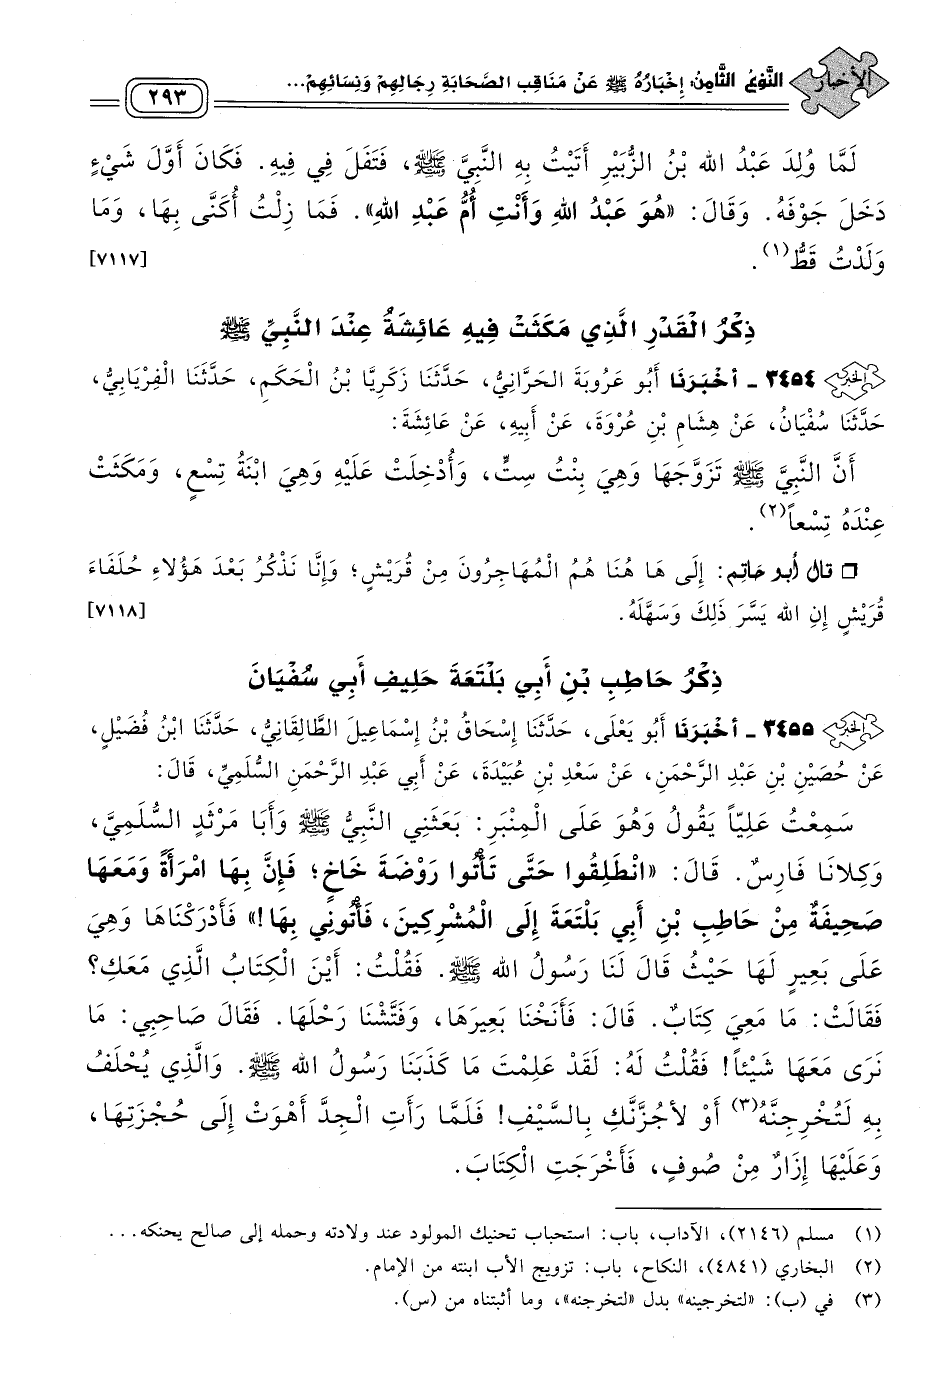 الأخبار
النَّوْعُ الثَّامِنُ: إِخْبَارُهُ ﷺ عَنْ مَنَاقِبِ الصَّحَابَةِ رِجَالِهِمْ وَنِسَائِهِمْ...
٢٩٣
لَمَّا وُلِدَ عَبْدُ الله بْنُ الزُّبَيْرِ أَتَيْتُ بِهِ النَّبِيَّ ﷺ، فَتَفَلَ فِي فِيهِ. فَكَانَ أَوَّلَ شَيْءٍ
دَخَلَ جَوْفَهُ. وَقَالَ: «هُوَ عَبْدُ اللهِ وَأَنْتِ أُمُّ عَبْدِ اللهِ». فَمَا زِلْتُ أُكَنَّى بِهَا، وَمَا
وَلَدْتُ قَطُّ(١). [٧١١٧]
ذِكْرُ الْقَدْرِ الَّذِي مَكَثَتْ فِيهِ عَائِشَةُ عِنْدَ النَّبِيِّ ﷺ
الخبر ٣٤٥٤ ـ أَخْبَرَنَا أَبُو عَرُوبَةَ الْحَرَّانِيُّ، حَدَّثَنَا زَكَرِيَّا بْنُ الْحَكَمِ، حَدَّثَنَا الْفِرْيَابِيُّ،
حَدَّثَنَا سُفْيَانُ، عَنْ هِشَامِ بْنِ عُرْوَةَ، عَنْ أَبِيهِ، عَنْ عَائِشَةَ:
أَنَّ النَّبِيَّ ﷺ تَزَوَّجَهَا وَهِيَ بِنْتُ سِتٍّ، وَأُدْخِلَتْ عَلَيْهِ وَهِيَ ابْنَةُ تِسْعٍ، وَمَكَثَتْ
عِنْدَهُ تِسْعاً(٢).
❒ قال أبو حاتِم: إِلَى هَا هُنَا هُمُ الْمُهَاجِرُونَ مِنْ قُرَيْشٍ؛ وَإِنَّا نَذْكُرُ بَعْدَ هَؤُلَاءِ حُلَفَاءَ
قُرَيْشٍ إِنِ الله يَسَّرَ ذَلِكَ وَسَهَّلَهُ. [٧١١٨]
ذِكْرُ حَاطِبِ بْنِ أَبِي بَلْتَعَةَ حَلِيفِ أَبِي سُفْيَانَ
الخبر ٣٤٥٥ ـ أَخْبَرَنَا أَبُو يَعْلَى، حَدَّثَنَا إِسْحَاقُ بْنُ إِسْمَاعِيلَ الطَّالِقَانِيُّ، حَدَّثَنَا ابْنُ فُضَيْلٍ،
عَنْ حُصَيْنِ بْنِ عَبْدِ الرَّحْمَنِ، عَنْ سَعْدِ بْنِ عُبَيْدَةَ، عَنْ أَبِي عَبْدِ الرَّحْمَنِ السُّلَمِيِّ، قَالَ:
سَمِعْتُ عَلِيّاً يَقُولُ وَهُوَ عَلَى الْمِنْبَرِ: بَعَثَنِي النَّبِيُّ ﷺ وَأَبَا مَرْثَدٍ السُّلَمِيَّ،
وَكِلَانَا فَارِسٌ. قَالَ: «انْطَلِقُوا حَتَّى تَأْتُوا رَوْضَةَ خَاخٍ؛ فَإِنَّ بِهَا امْرَأَةً وَمَعَهَا
صَحِيفَةٌ مِنْ حَاطِبِ بْنِ أَبِي بَلْتَعَةَ إِلَى الْمُشْرِكِينَ، فَأْتُونِي بِهَا!» فَأَدْرَكْنَاهَا وَهِيَ
عَلَى بَعِيرٍ لَهَا حَيْثُ قَالَ لَنَا رَسُولُ الله ﷺ. فَقُلْتُ: أَيْنَ الْكِتَابُ الَّذِي مَعَكِ؟
فَقَالَتْ: مَا مَعِيَ كِتَابٌ. قَالَ: فَأَنَخْنَا بَعِيرَهَا، وَفَتَّشْنَا رَحْلَهَا. فَقَالَ صَاحِبِي: مَا
نَرَى مَعَهَا شَيْئاً! فَقُلْتُ لَهُ: لَقَدْ عَلِمْتَ مَا كَذَبَنَا رَسُولُ الله ﷺ. وَالَّذِي يُحْلَفُ
بِهِ لَتُخْرِجِنَّهُ(٣) أَوْ لأَجُزَّنَّكِ بِالسَّيْفِ! فَلَمَّا رَأَتِ الْجِدَّ أَهْوَتْ إِلَى حُجْزَتِهَا،
وَعَلَيْهَا إِزَارٌ مِنْ صُوفٍ، فَأَخْرَجَتِ الْكِتَابَ.
(١) مسلم (٢١٤٦)، الآداب، باب: استحباب تحنيك المولود عند ولادته وحمله إلى صالح يحنكه...
(٢) البخاري (٤٨٤١)، النكاح، باب: تزويج الأب ابنته من الإمام.
(٣) في (ب): «لتخرجينه» بدل «لتخرجنه»، وما أثبتناه من (س).